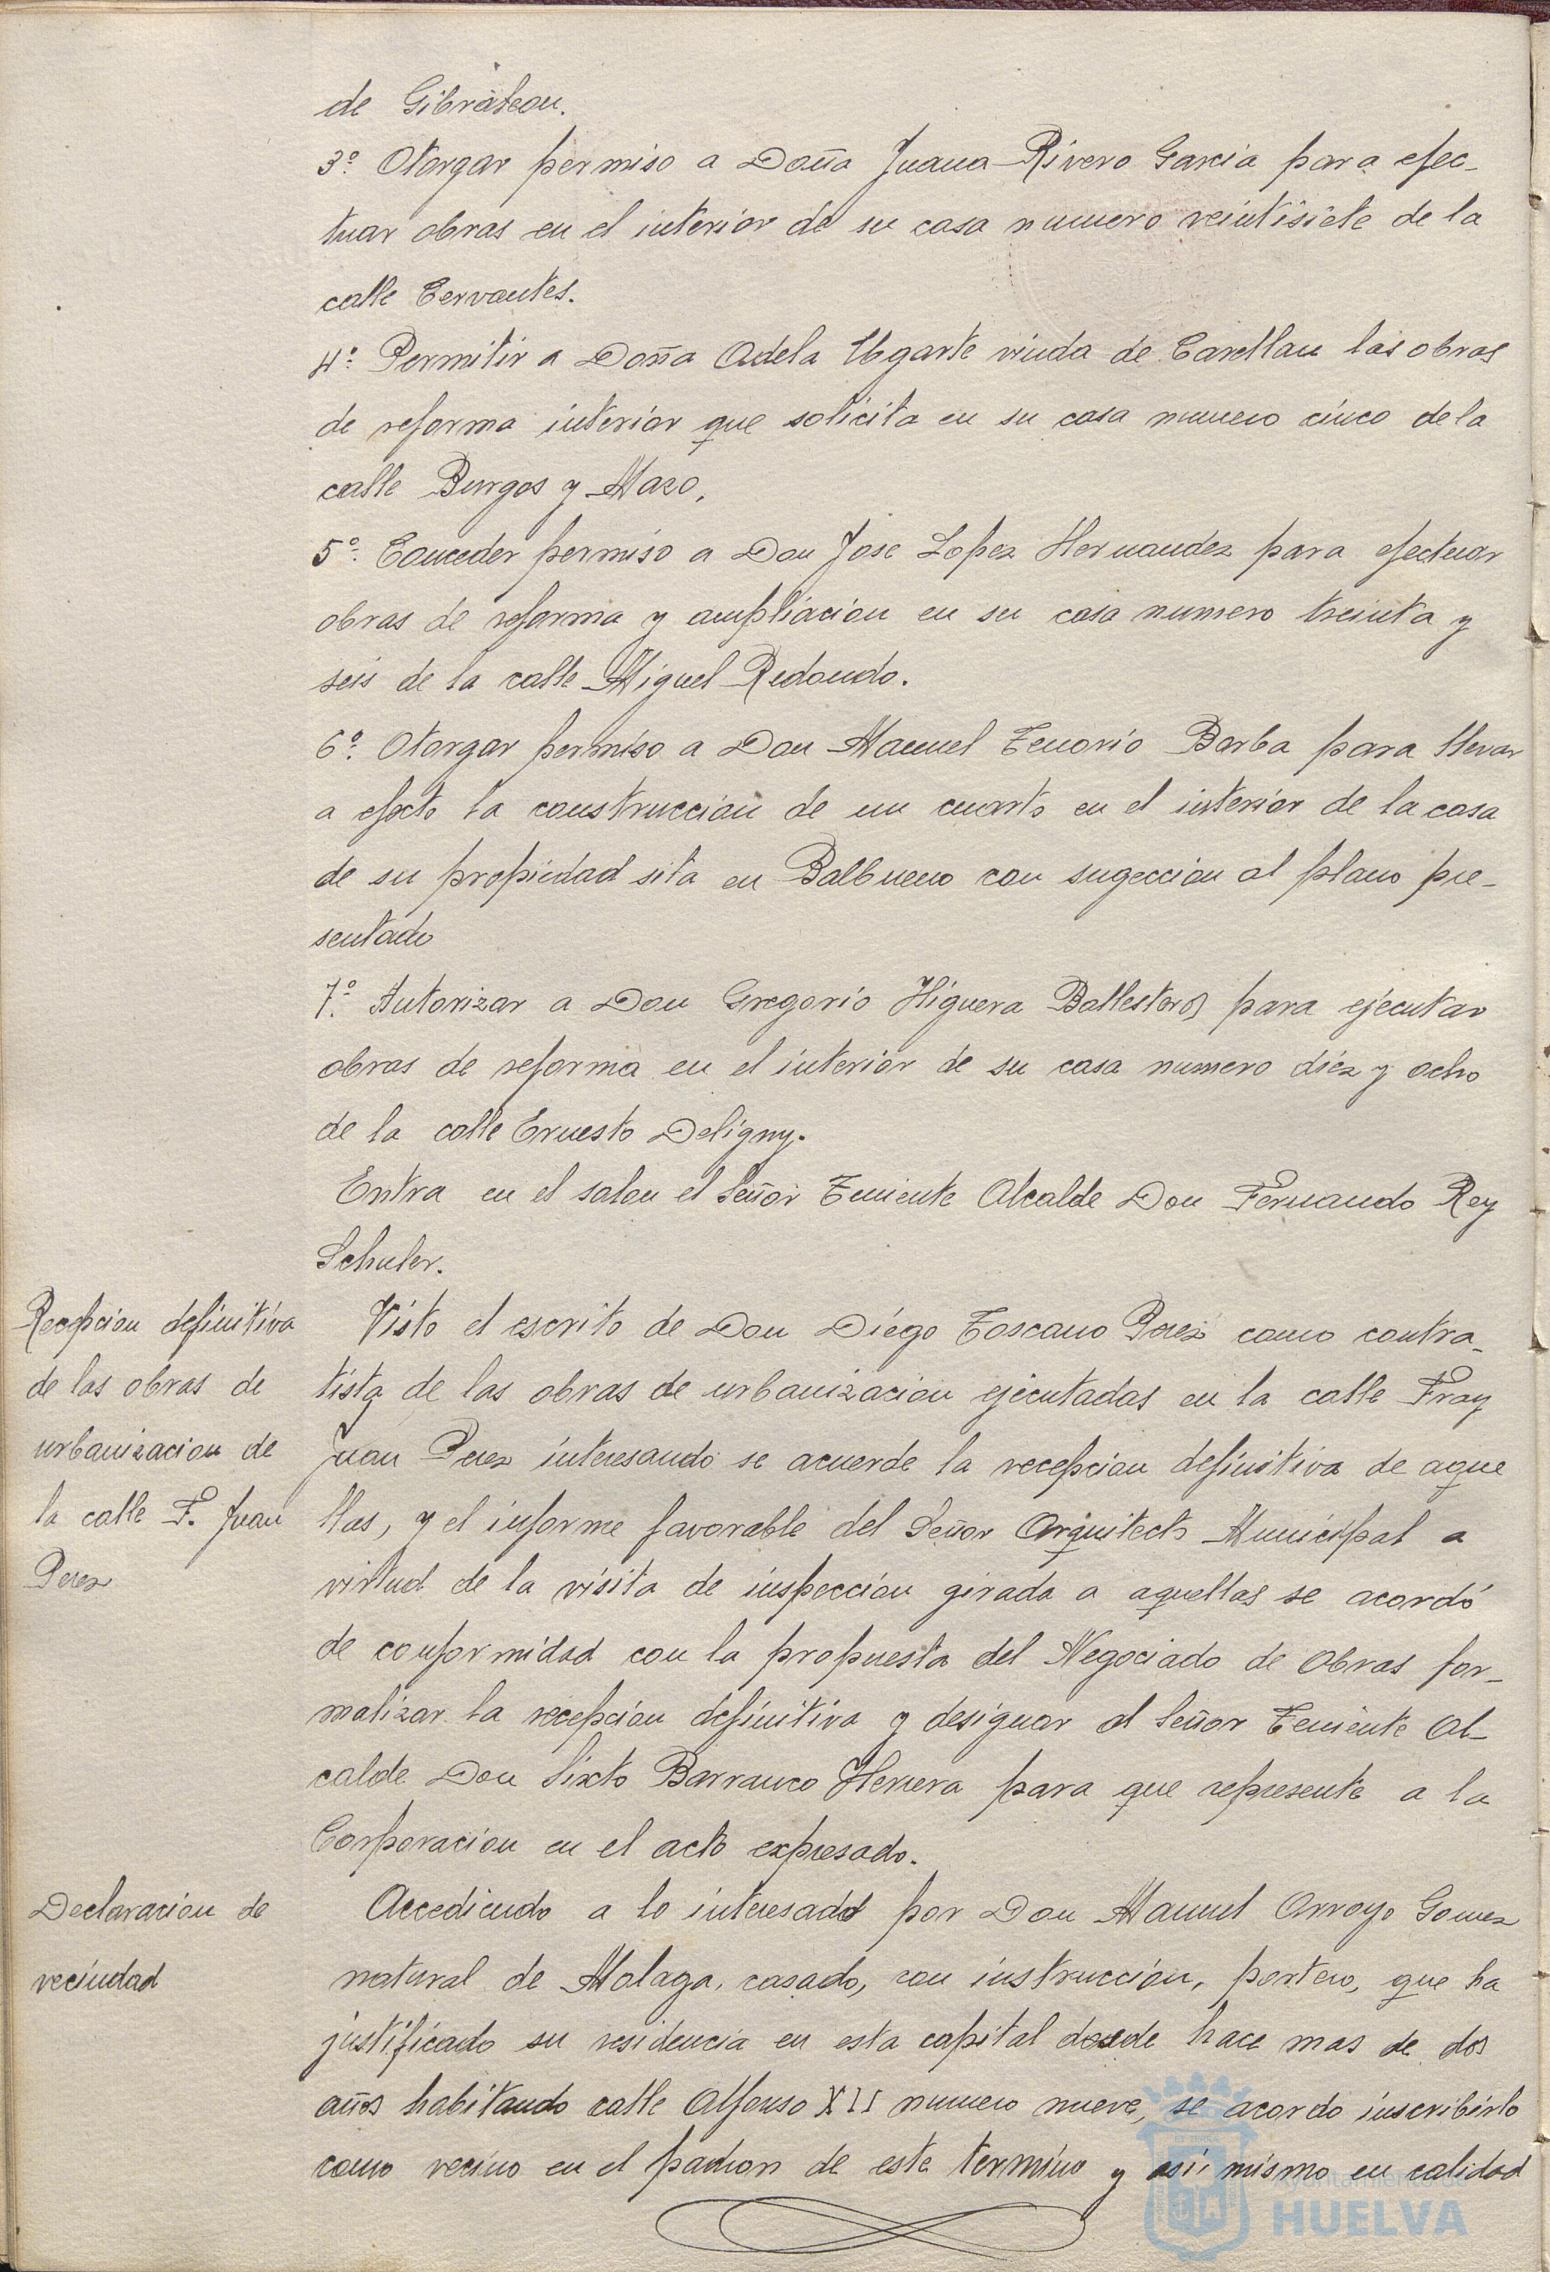 de Gibraleon.
3º Otorgar permiso a Doña Juana Rivero Garcia para efec-
tuar obras en el interior de su casa numero veintisiete de la
calle Cervantes.
4º Permitir a Doña Adela Ugarte viuda de Carellan las obras
de reforma interior que solicita en su casa numero cinco de la
calle Burgos y Mazo.
5º Conceder permiso a Don Jose Lopez Hernandez para efectuar
obras de reforma y ampliacion en su casa numero treinta y
seis de la calle Miguel Redondo.
6º Otorgar permiso a Don Manuel Tenorio Borba para llevar
a efecto la construccion de un cuarto en el interior de la casa
de su propiedad sita en Balbueno con sugeccion al plano pre-
sentado
7º Autorizar a Don Gregorio Higuera Ballesteros para ejecutar
obras de reforma en el interior de su casa numero diez y ocho
de la calle Ernesto Deligny.
Entra en el salon el Señor Teniente Alcalde Don Fernando Rey
Schuler.
Recepcion definitiva
de las obras de
urbanizacion de
la calle F. Juan
Perez
Visto el escrito de Don Diego Toscano Perez como contra-
tista de las obras de urbanizacion ejecutadas en la calle Fray
Juan Perez interesando se acuerde la recepcion definitiva de aque
llas, y el informe favorable del Señor Arquitecto Municipal a
virtud de la visita de inspeccion girada a aquellas se acordó
de conformidad con la propuesta del Negociado de Obras for-
malizar la recepcion definitiva y designar al Señor Teniente Al-
calde Don Sixto Barranco Herrera para que represente a la
Corporacion en el acto expresado.
Declaracion de
vecindad
Accediendo a lo interesado por Don Manuel Arroyo Gomez
natural de Malaga, casado, con instruccion, portero, que ha
justificado su residencia en esta capital desde hace mas de dos
años habitando calle Alfonso XII numero nueve, se acordo inscribirlo
como vecino en el padron de este termino y asi mismo en calidad
Ayuntamiento de
HUELVA